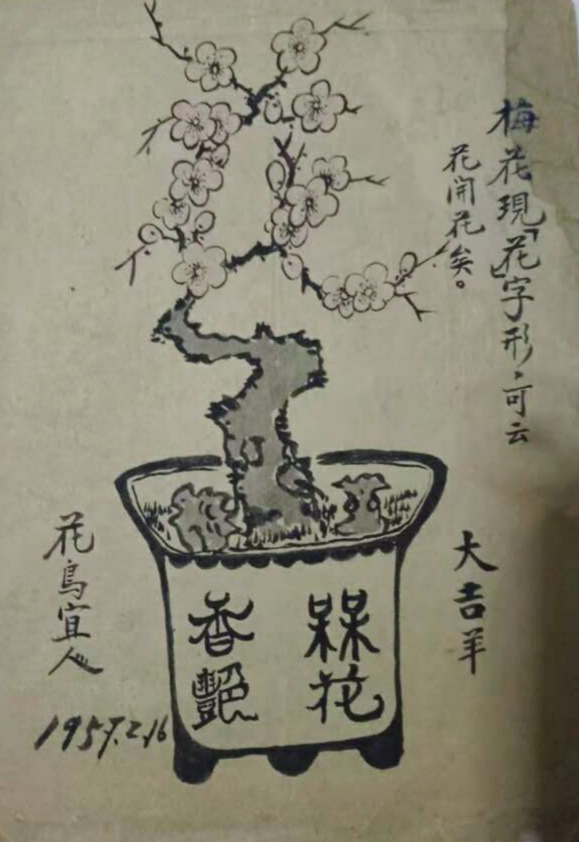 梅花現「花」字形，可云
花開花矣。
大吉羊
槑花
香艷
花鳥宜人
1957.2.16